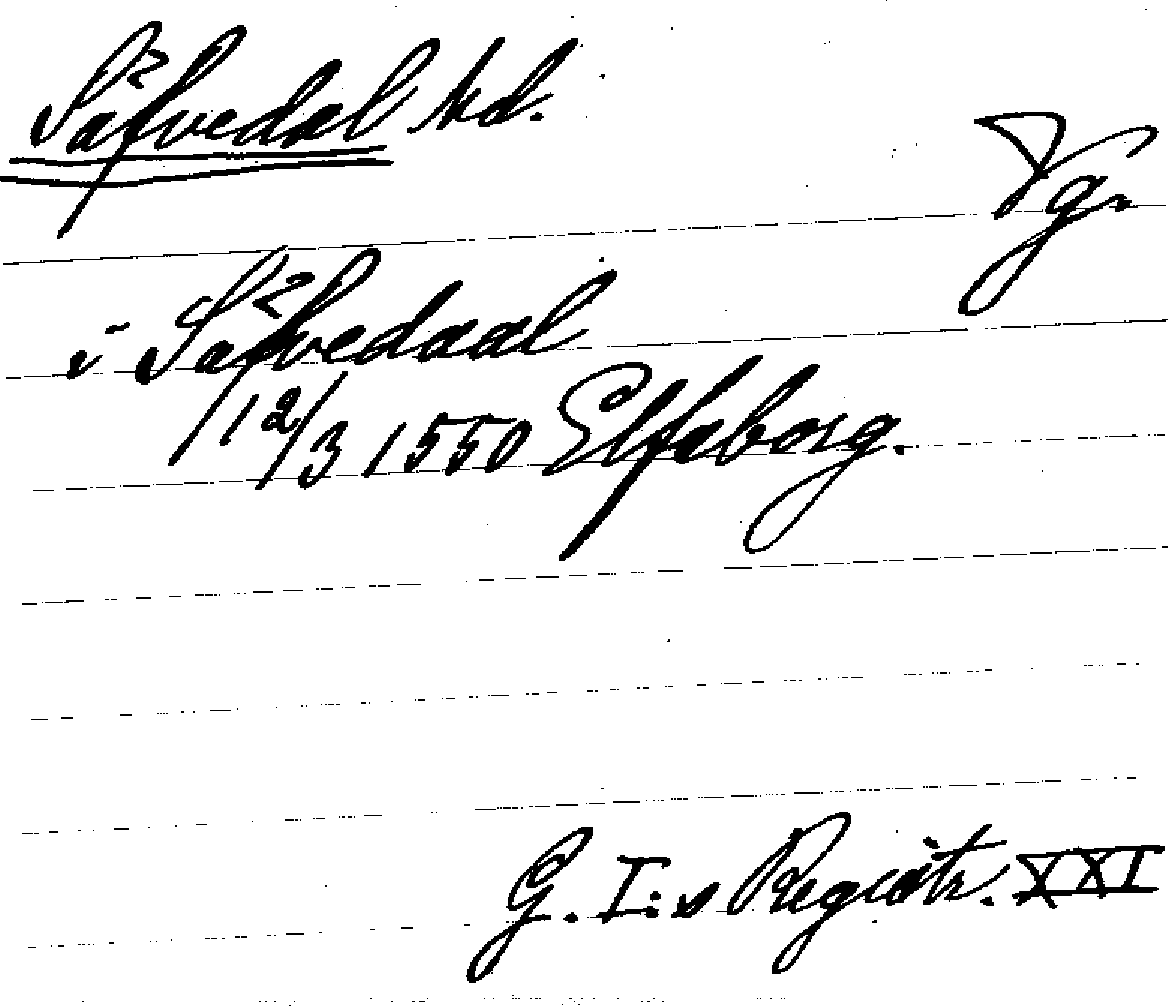 Säfvedal hd.
Vg.
i Säfvedaal
12/3 1550 Elfsborg.
G. I:s Registr. XXI